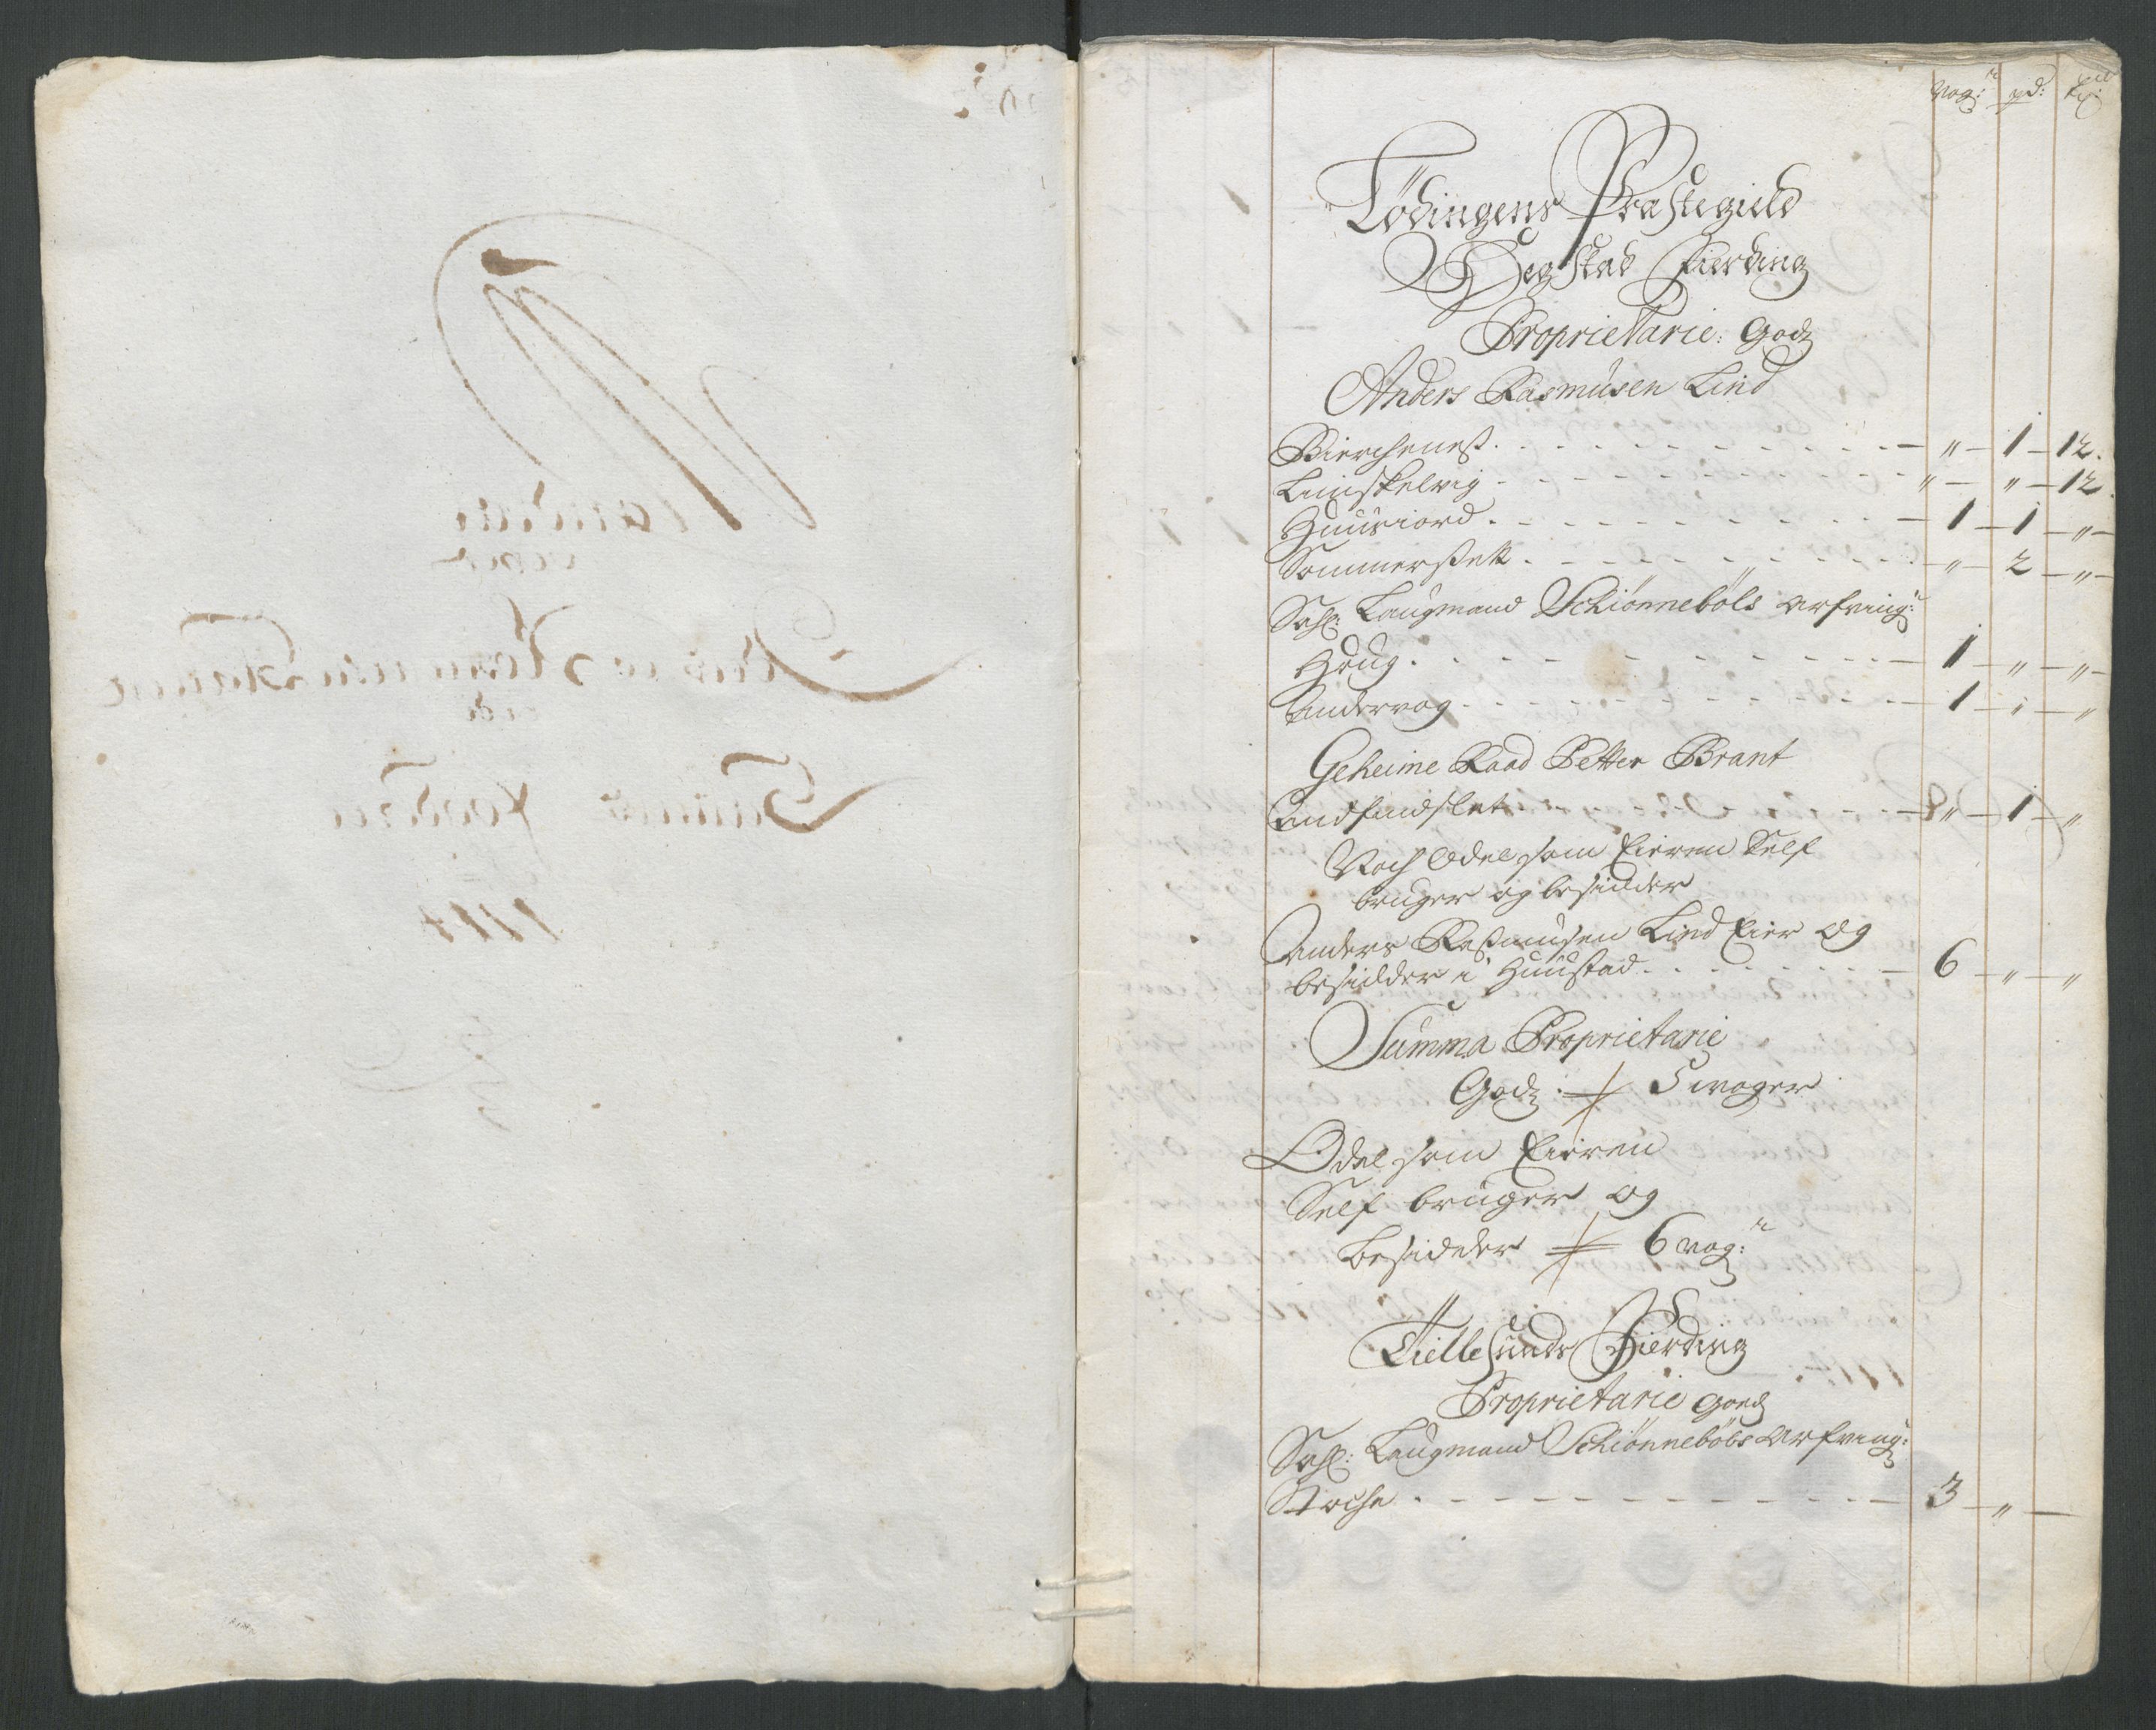 Vog:r pd: 
Lödingens Præstegield
Hegstad Fierding
Proprietarie: Godz
Anders Rasmusen Lind
Bierchenes . . . — " — 1 — 12.
Leuschelvig . . . " — " — 12.
Huusiord . . . — 1 — 1 — "
Sommersett . . . — " — 2 — "
Sahl: Laugmand Schiønnebøls Arfving:r
Houg . . . — 1 — " — "
Andervog . . . — 1 — 1 — "
Geheime Raad Petter Brant
Indfindslet . . . — " — 1 — "
Noch Odel som Eieren Self
bruger og besidder
Anders Rasmusen Lind Eier og
besidder i Huustad . . . — 6 — " — "
Summa Proprietarie
Godz . 5 woger
Odel som Eieren
Self bruger og
besidder 6 vog:r
Tiellesunds Fierding
Proprietarie Godz
Sahl: Laugmand Schiønnebøls Arfving:
Stoche . . . — 3 — " —